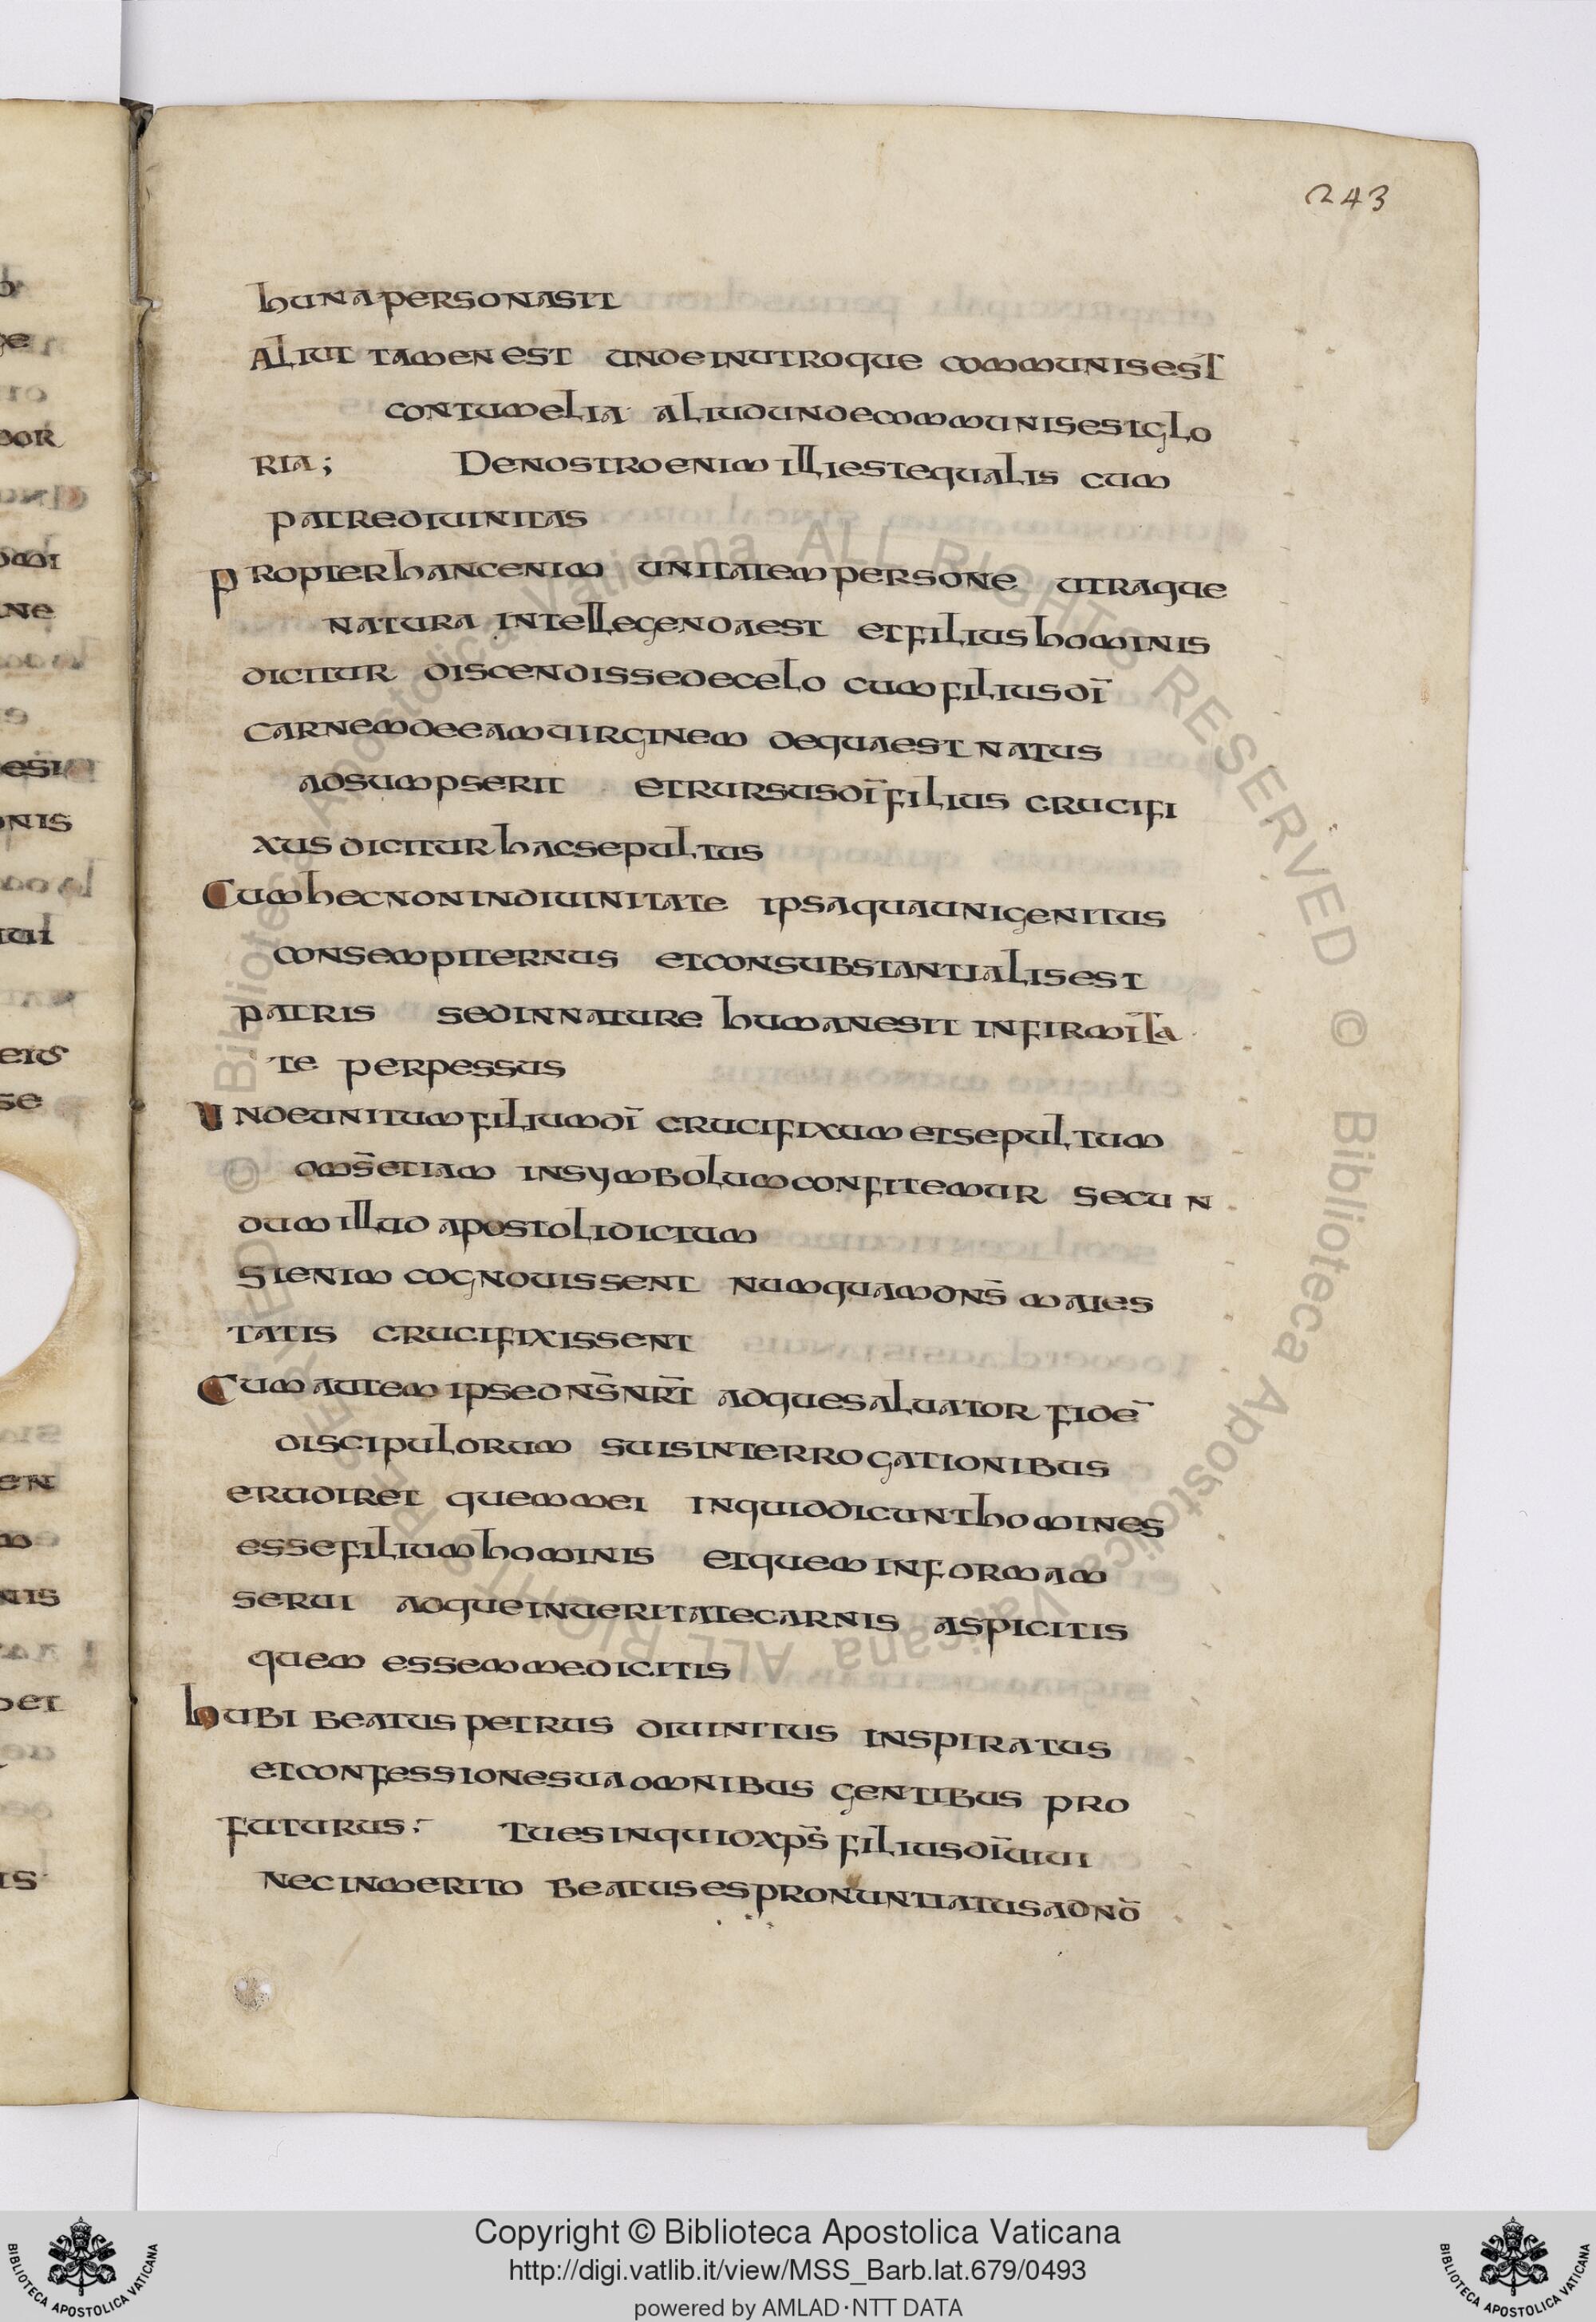 243
huna persona sit
Aliut tamen est unde in utroque communis est
contumelia aliud unde communis est glo
ria; De nostro enim illi est equalis cum
patre diuinitas
Propter hanc enim unitatem persone utraque
natura intellegenda est et filius hominis
dicitur discendisse de celo cum filius dī
carnem de eam uirginem de qua est natus
adsumpserit et rursus dī filius crucifi
xus dicitur hac sepultus
Cum hec non in diuinitate ipsa qua unigenitus
consempiternus et consubstantialis est
patris sed in nature humane sit infirmita
te perpessus
Unde unitum filium dī crucifixum et sepultum
oms̄ etiam in symbolum confitemur secun
dum illud apostoli dictum
Si enim cognouissent numquam dns̄ maies
tatis crucifixissent
Cum autem ipse dns̄ nr̄t adque saluator fidē
discipulorum suis interrogationibus
erudiret quem mei inquid dicunt homines
esse filium hominis et quem in formam
serui adque in ueritate carnis aspicitis
quem essem me dicitis
hubi beatus petrus diuinitus inspiratus
et confessione sua omnibus gentibus pro
futurus: Tu es inquid xps̄ filius dī uiui
nec inmerito beatus es pronuntiatus a dnō
Copyright © Biblioteca Apostolica Vaticana
http://digi.vatlib.it/view/MSS_Barb.lat.679/0493
powered by AMLAD·NTT DATA
BIBLIOTECA APOSTOLICA VATICANA
BIBLIOTECA APOSTOLICA VATICANA